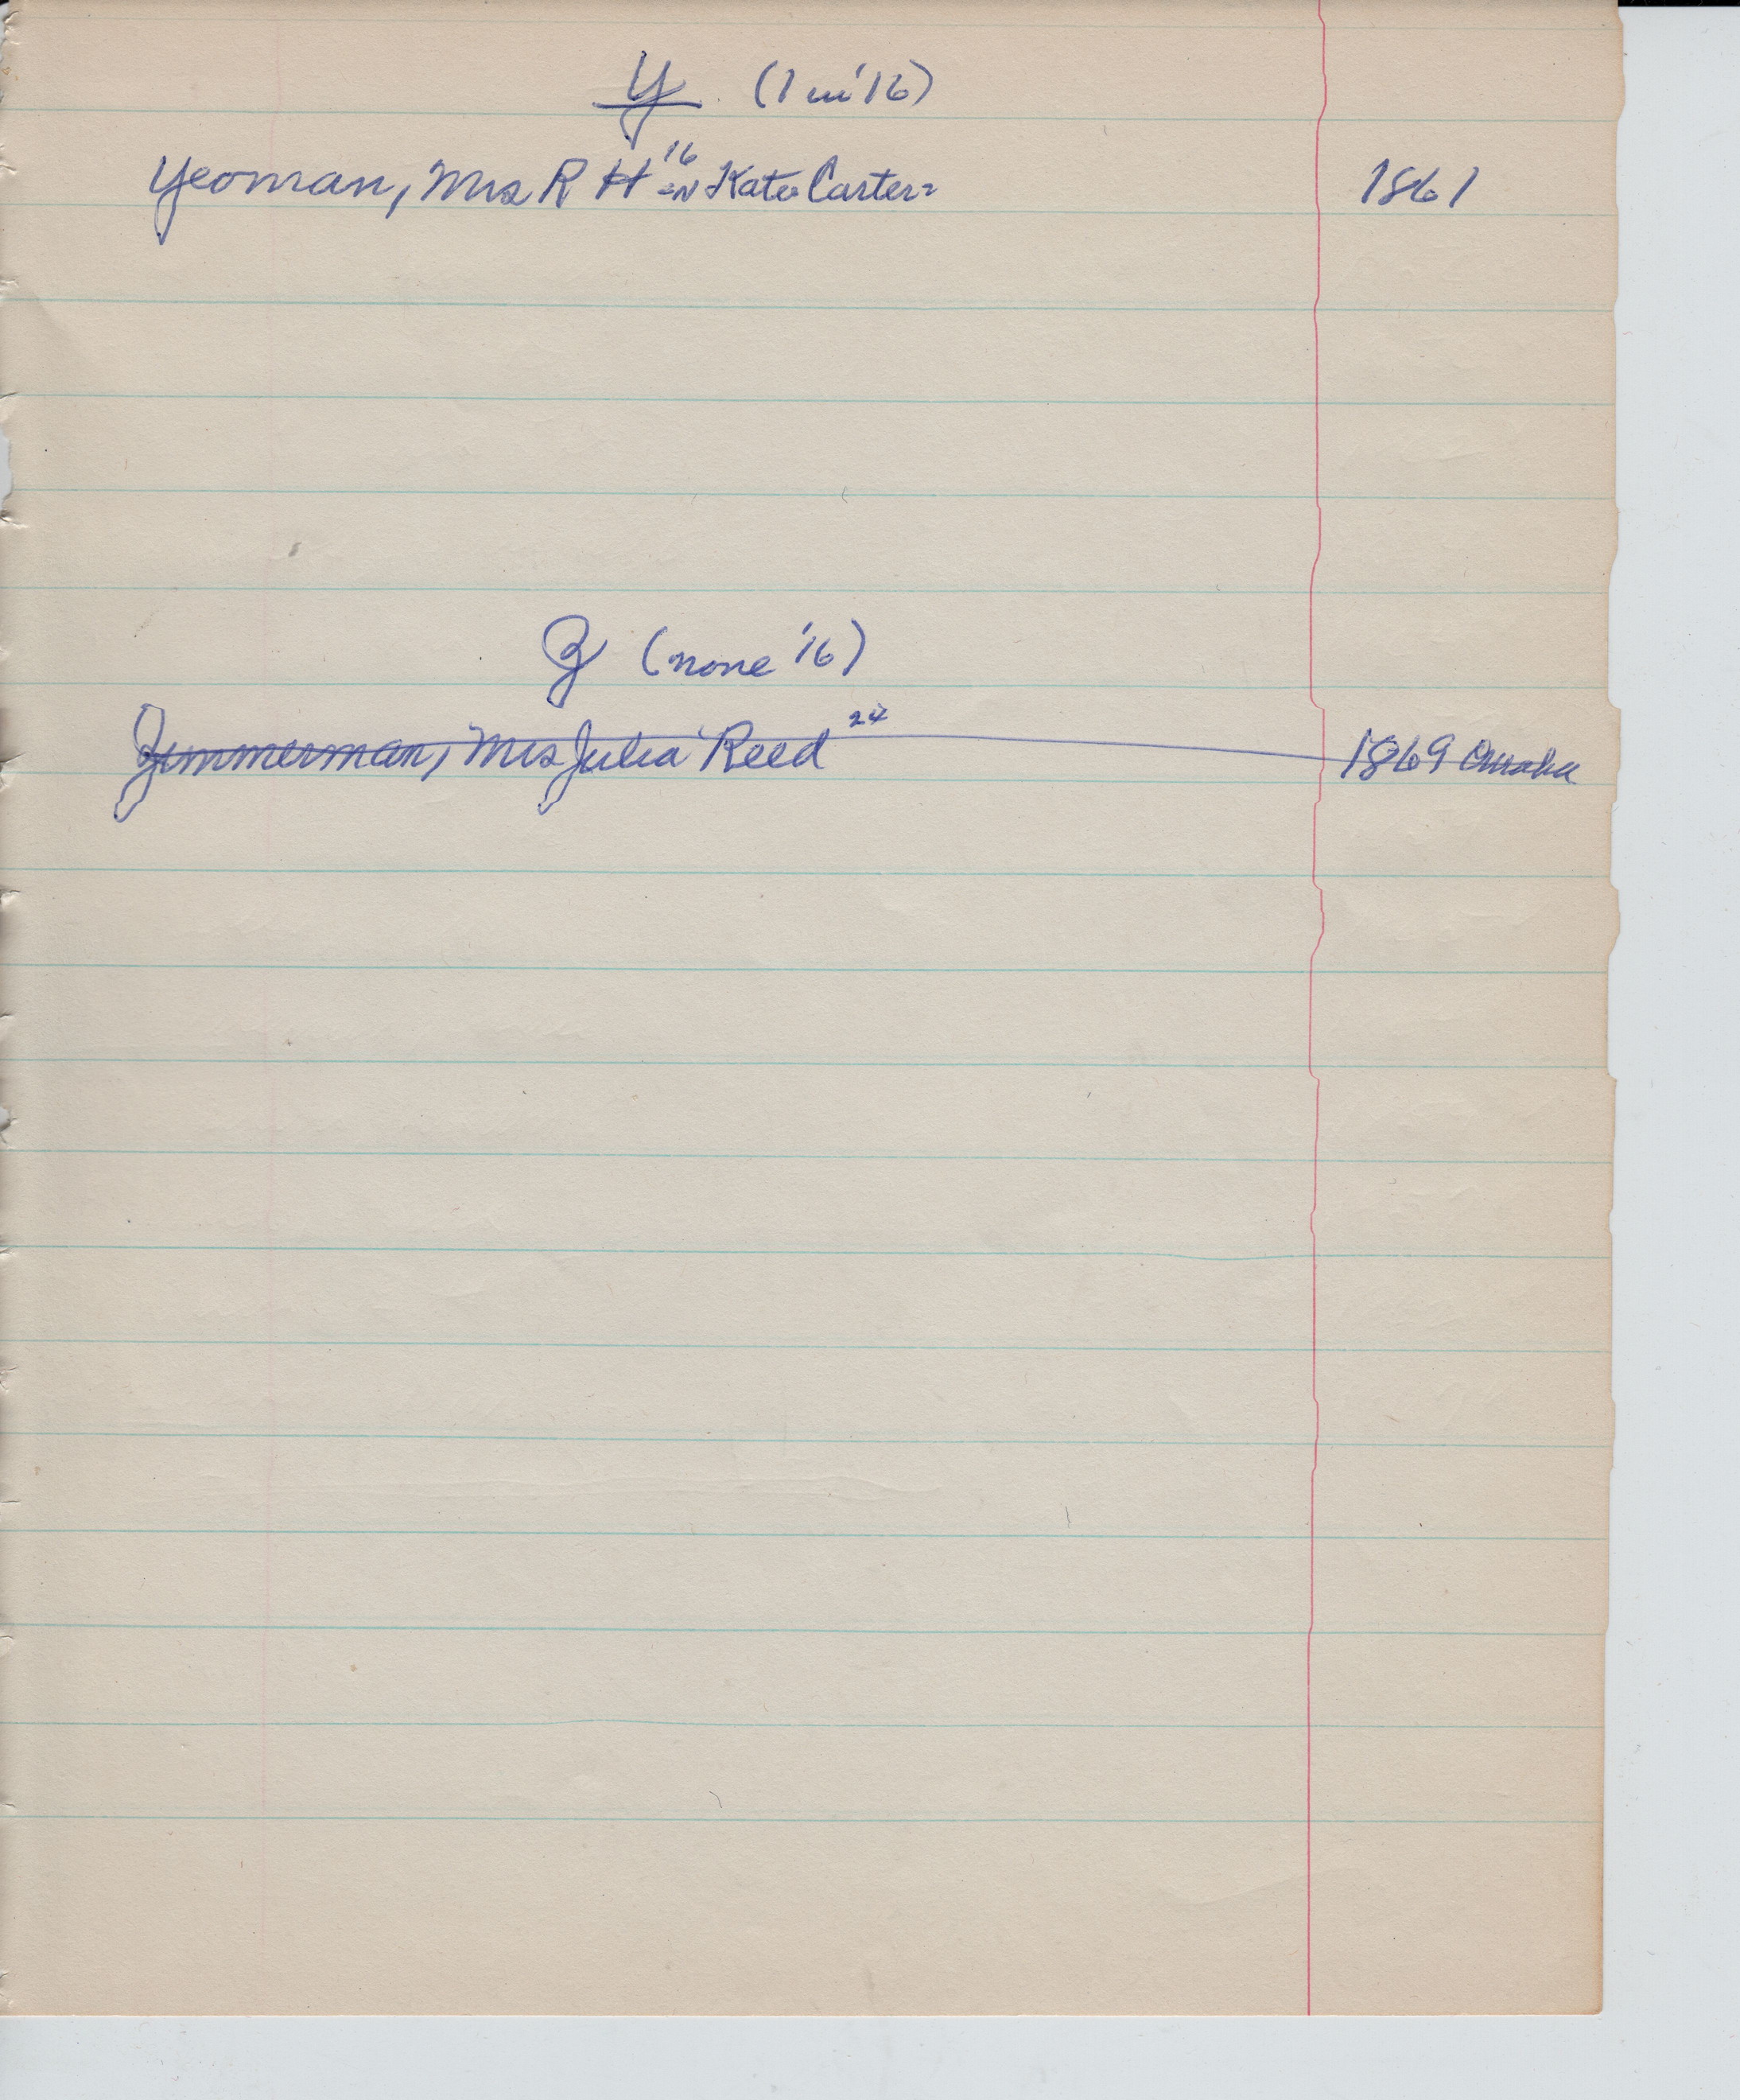 Y (1 in '16)
Yeoman, Mrs R H '16 =N Kate Carter= 1861
Z (none '16)
Zimmerman, Mrs Julia Reed 24 1869 Omaha